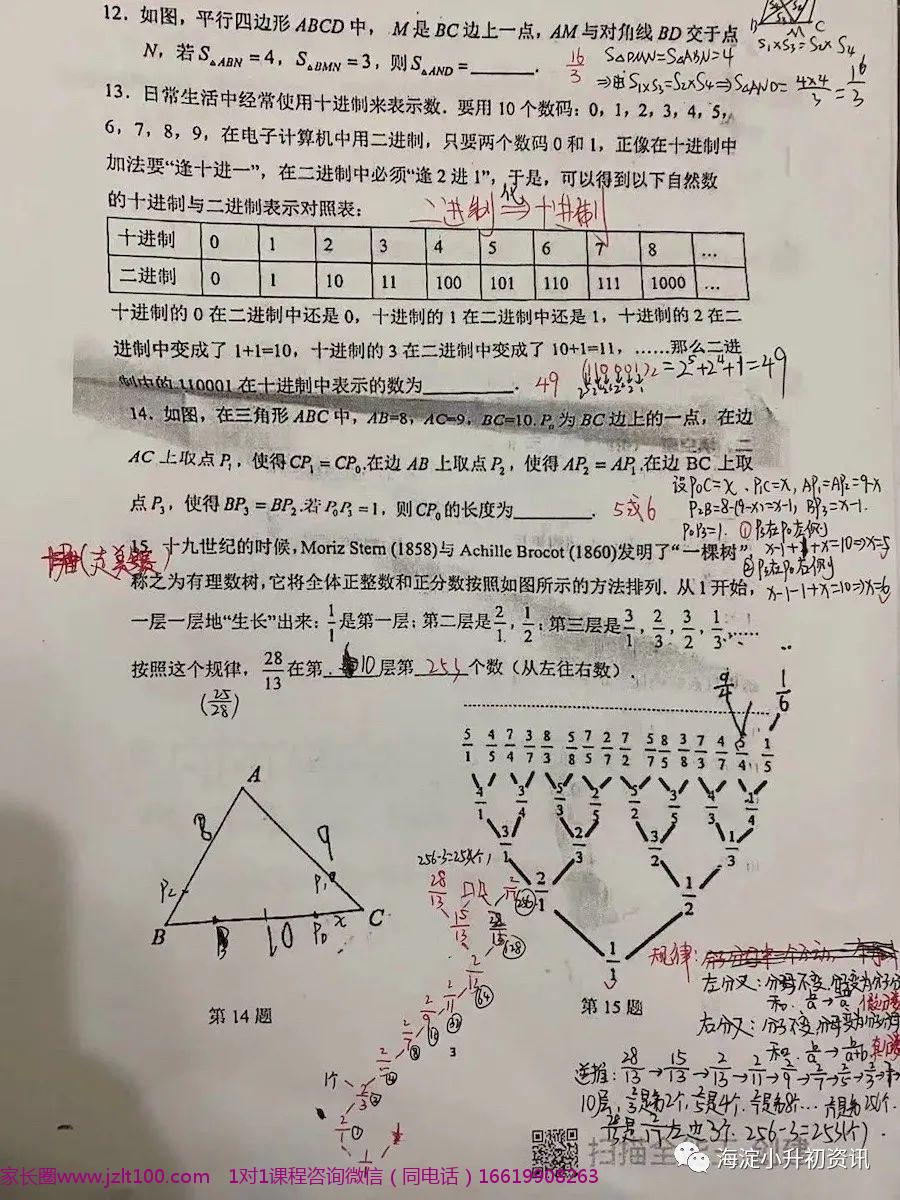 12. 如图，平行四边形 ABCD 中， M 是 BC 边上一点，AM 与对角线 BD 交于点
N，若 S△ABN = 4，S△BMN = 3，则 S△AND = ______. 16/3
C
M
S₁×S₃=S₂×S₄
S△DMN=S△ABN=4
⇒由S₁×S₃=S₂×S₄⇒S△AND=4×4/3=16/3
13. 日常生活中经常使用十进制来表示数. 要用 10 个数码：0，1，2，3，4，5，
6，7，8，9，在电子计算机中用二进制，只要两个数码 0 和 1，正像在十进制中
加法要“逢十进一”，在二进制中必须“逢 2 进 1”，于是，可以得到以下自然数
的十进制与二进制表示对照表：
二进制 化⇒ 十进制
十进制 0 1 2 3 4 5 6 7 8 …
二进制 0 1 10 11 100 101 110 111 1000 …
十进制的 0 在二进制中还是 0，十进制的 1 在二进制中还是 1，十进制的 2 在二
进制中变成了 1+1=10，十进制的 3 在二进制中变成了 10+1=11，……那么二进
制中的 110001 在十进制中表示的数为______. 49 (110001)₂=2⁵+2⁴+1=49
14. 如图，在三角形 ABC 中，AB=8，AC=9，BC=10. P₀为 BC 边上的一点，在边
AC 上取点 P₁，使得 CP₁ = CP₀.在边 AB 上取点 P₂，使得 AP₂ = AP₁.在边 BC 上取
点 P₃，使得 BP₃ = BP₂.若 P₀P₃ = 1，则 CP₀ 的长度为______. 5或6
设P₀C=x、P₁C=x，AP₁=AP₂=9-x
P₂B=8-(9-x)=x-1，BP₃=x-1.
P₀P₃=1. ①P₃在P₀左侧
x-1+1+x=10⇒x=5
x-1-1+x=10⇒x=6
15. 十九世纪的时候，Moriz Stern (1858)与 Achille Brocot (1860)发明了“一棵树”，
称之为有理数树，它将全体正整数和正分数按照如图所示的方法排列. 从 1 开始，
一层一层地“生长”出来：1/1 是第一层；第二层是 2/1，1/2；第三层是 3/1，2/3，3/2，1/3，……
按照这个规律，28/13 在第 10 层第 253 个数（从左往右数）.
9/4 1/6
5/1 4/5 7/4 3/7 8/3 5/8 7/5 2/7 7/2 5/7 8/5 3/8 7/3 4/7 5/4 1/5
4/1 3/4 5/3 2/5 5/2 3/5 4/3 1/4
3/1 2/3 3/2 1/3
2/1 1/2
1/1
A
8
9
P₂
P₁
B
10
P₀
x
C
第 14 题
第 15 题
256-3=253个
28/13
15/13
2/13
2/11
2/9
2/7
2/3
2/1
1个
规律：
左分叉：分母不变
右分叉：分子不变
逆推：28/13→15/13→2/13→2/11→2/9→2/7→2/5→2/3→
256-3=253(个).
海淀小升初资讯
家长圈www.jzlt100.com 1对1课程咨询微信（同电话）16619908263